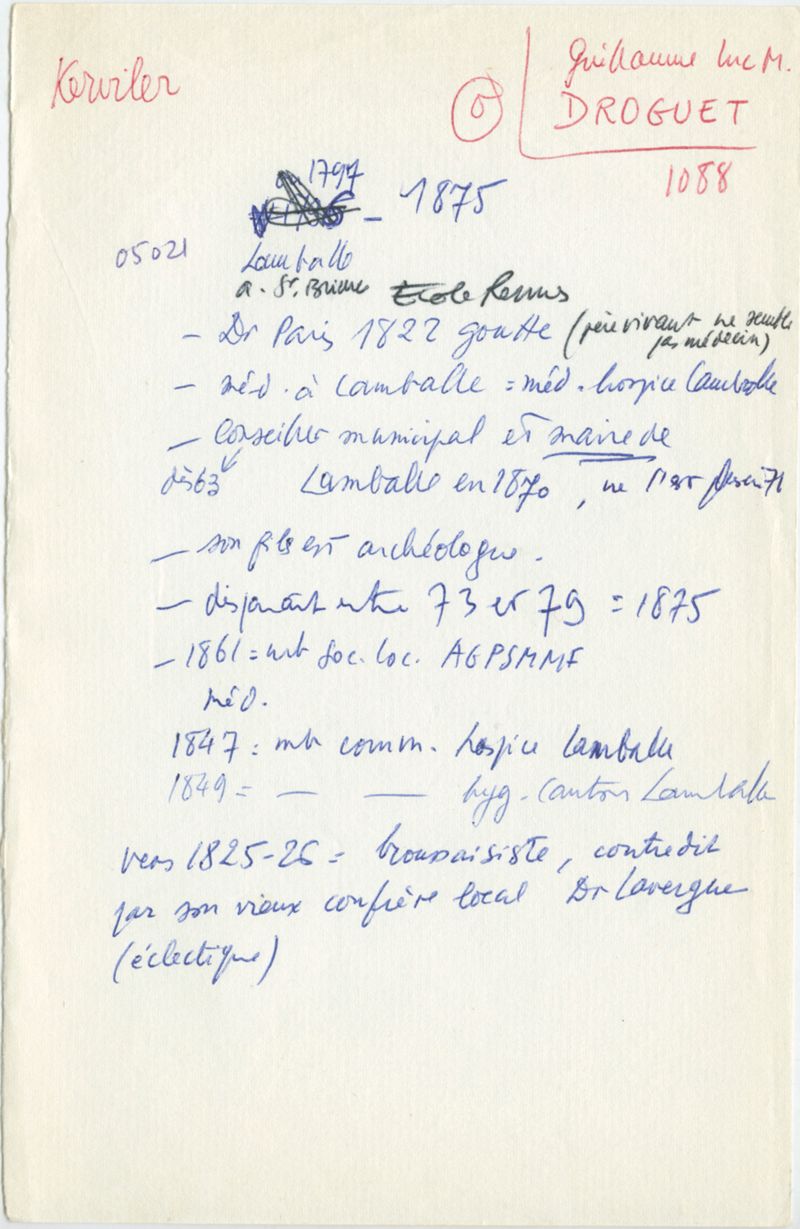 Kerviler
Guillaume Luc M.
DROGUET
1088
1797
- 1875
05021
Lamballe
a. St. Brieuc Ecole Rennes
- Dr Paris 1822 goutte (père vivant ne semble
pas médecin)
- méd. à Lamballe = méd. hospice Lamballe
- Conseiller municipal et maire de
dès 63 Lamballe en 1870, ne l'est plus en 71
- son fils est archéologue.
- disparaît entre 73 et 79 = 1875
- 1861 = mb Soc. loc. AGPSMMF
méd.
1847 = mb comm. hospice Lamballe
1849 = — — hyg. Canton Lamballe
vers 1825-26 = broussaisiste, contredit
par son vieux confrère local Dr Lavergne
(éclectique)